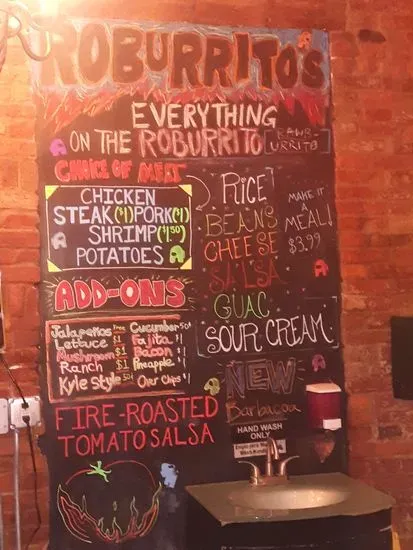 ROBURRITOS
EVERYTHING
ON THE ROBURRITO
RAWB-
URRITO
CHOICE OF MEAT
CHICKEN
STEAK($1) PORK($1)
SHRIMP($1.50)
POTATOES
RICE
BEANS
CHEESE
SALSA
GUAC
SOUR CREAM
MAKE IT
A
MEAL!
$3.99
ADD-ONS
Jalapeños Free Cucumber 50¢
Lettuce $1 Fajita $1
Mushroom $1 Bacon $1
Ranch $1 Pineapple
Kyle Style 50¢ Our Chips $1
NEW
Barbacoa
FIRE-ROASTED
TOMATO SALSA
HAND WASH
ONLY
Employees Must
Wash Hands